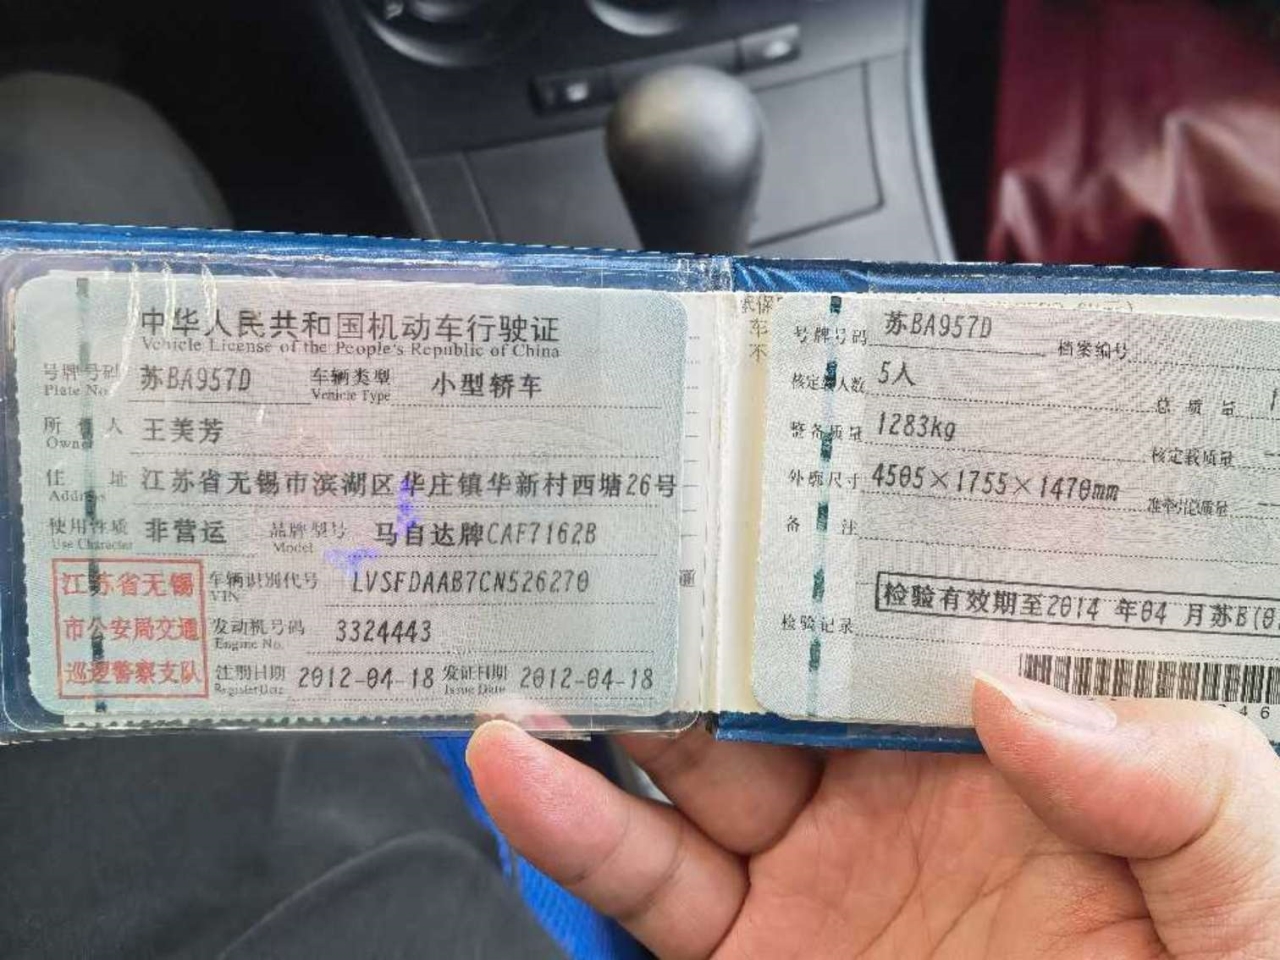 中华人民共和国机动车行驶证
Vehicle License of the People's Republic of China
号牌号码 苏BA957D 车辆类型 小型轿车
Plate No. Vehicle Type
所有人 王美芳
Owner
住址 江苏省无锡市滨湖区华庄镇华新村西塘26号
Address
使用性质 非营运 品牌型号 马自达牌CAF7162B
Use Character Model
江苏省无锡
市公安局交通
巡逻警察支队
车辆识别代号 LVSFDAAB7CN526270
VIN
发动机号码 3324443
Engine No.
注册日期 2012-04-18 发证日期 2012-04-18
Register Date Issue Date
号牌号码 苏BA957D 档案编号
核定载人数 5人 总质量
整备质量 1283kg 核定载质量
外廓尺寸 4505×1755×1470mm 准牵引总质量
备注
检验有效期至2014年04月苏B(0
检验记录